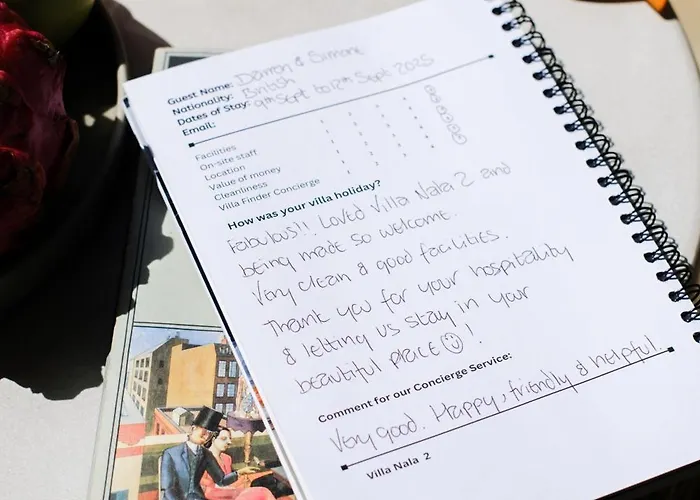 Guest Name: Damon & Simone
Nationality: British
Dates of Stay: 9th Sept to 12th Sept 2025
Email:
Facilities
On-site staff
Location
Value of money
Cleanliness
Villa Finder Concierge
How was your villa holiday?
Fabulous!! Loved Villa Nala 2 and
being made so welcome.
Very clean & good facilities.
Thank you for your hospitality
& letting us stay in your
beautiful place ☺!
Comment for our Concierge Service:
Very good. Happy, friendly & helpful.
Villa Nala 2